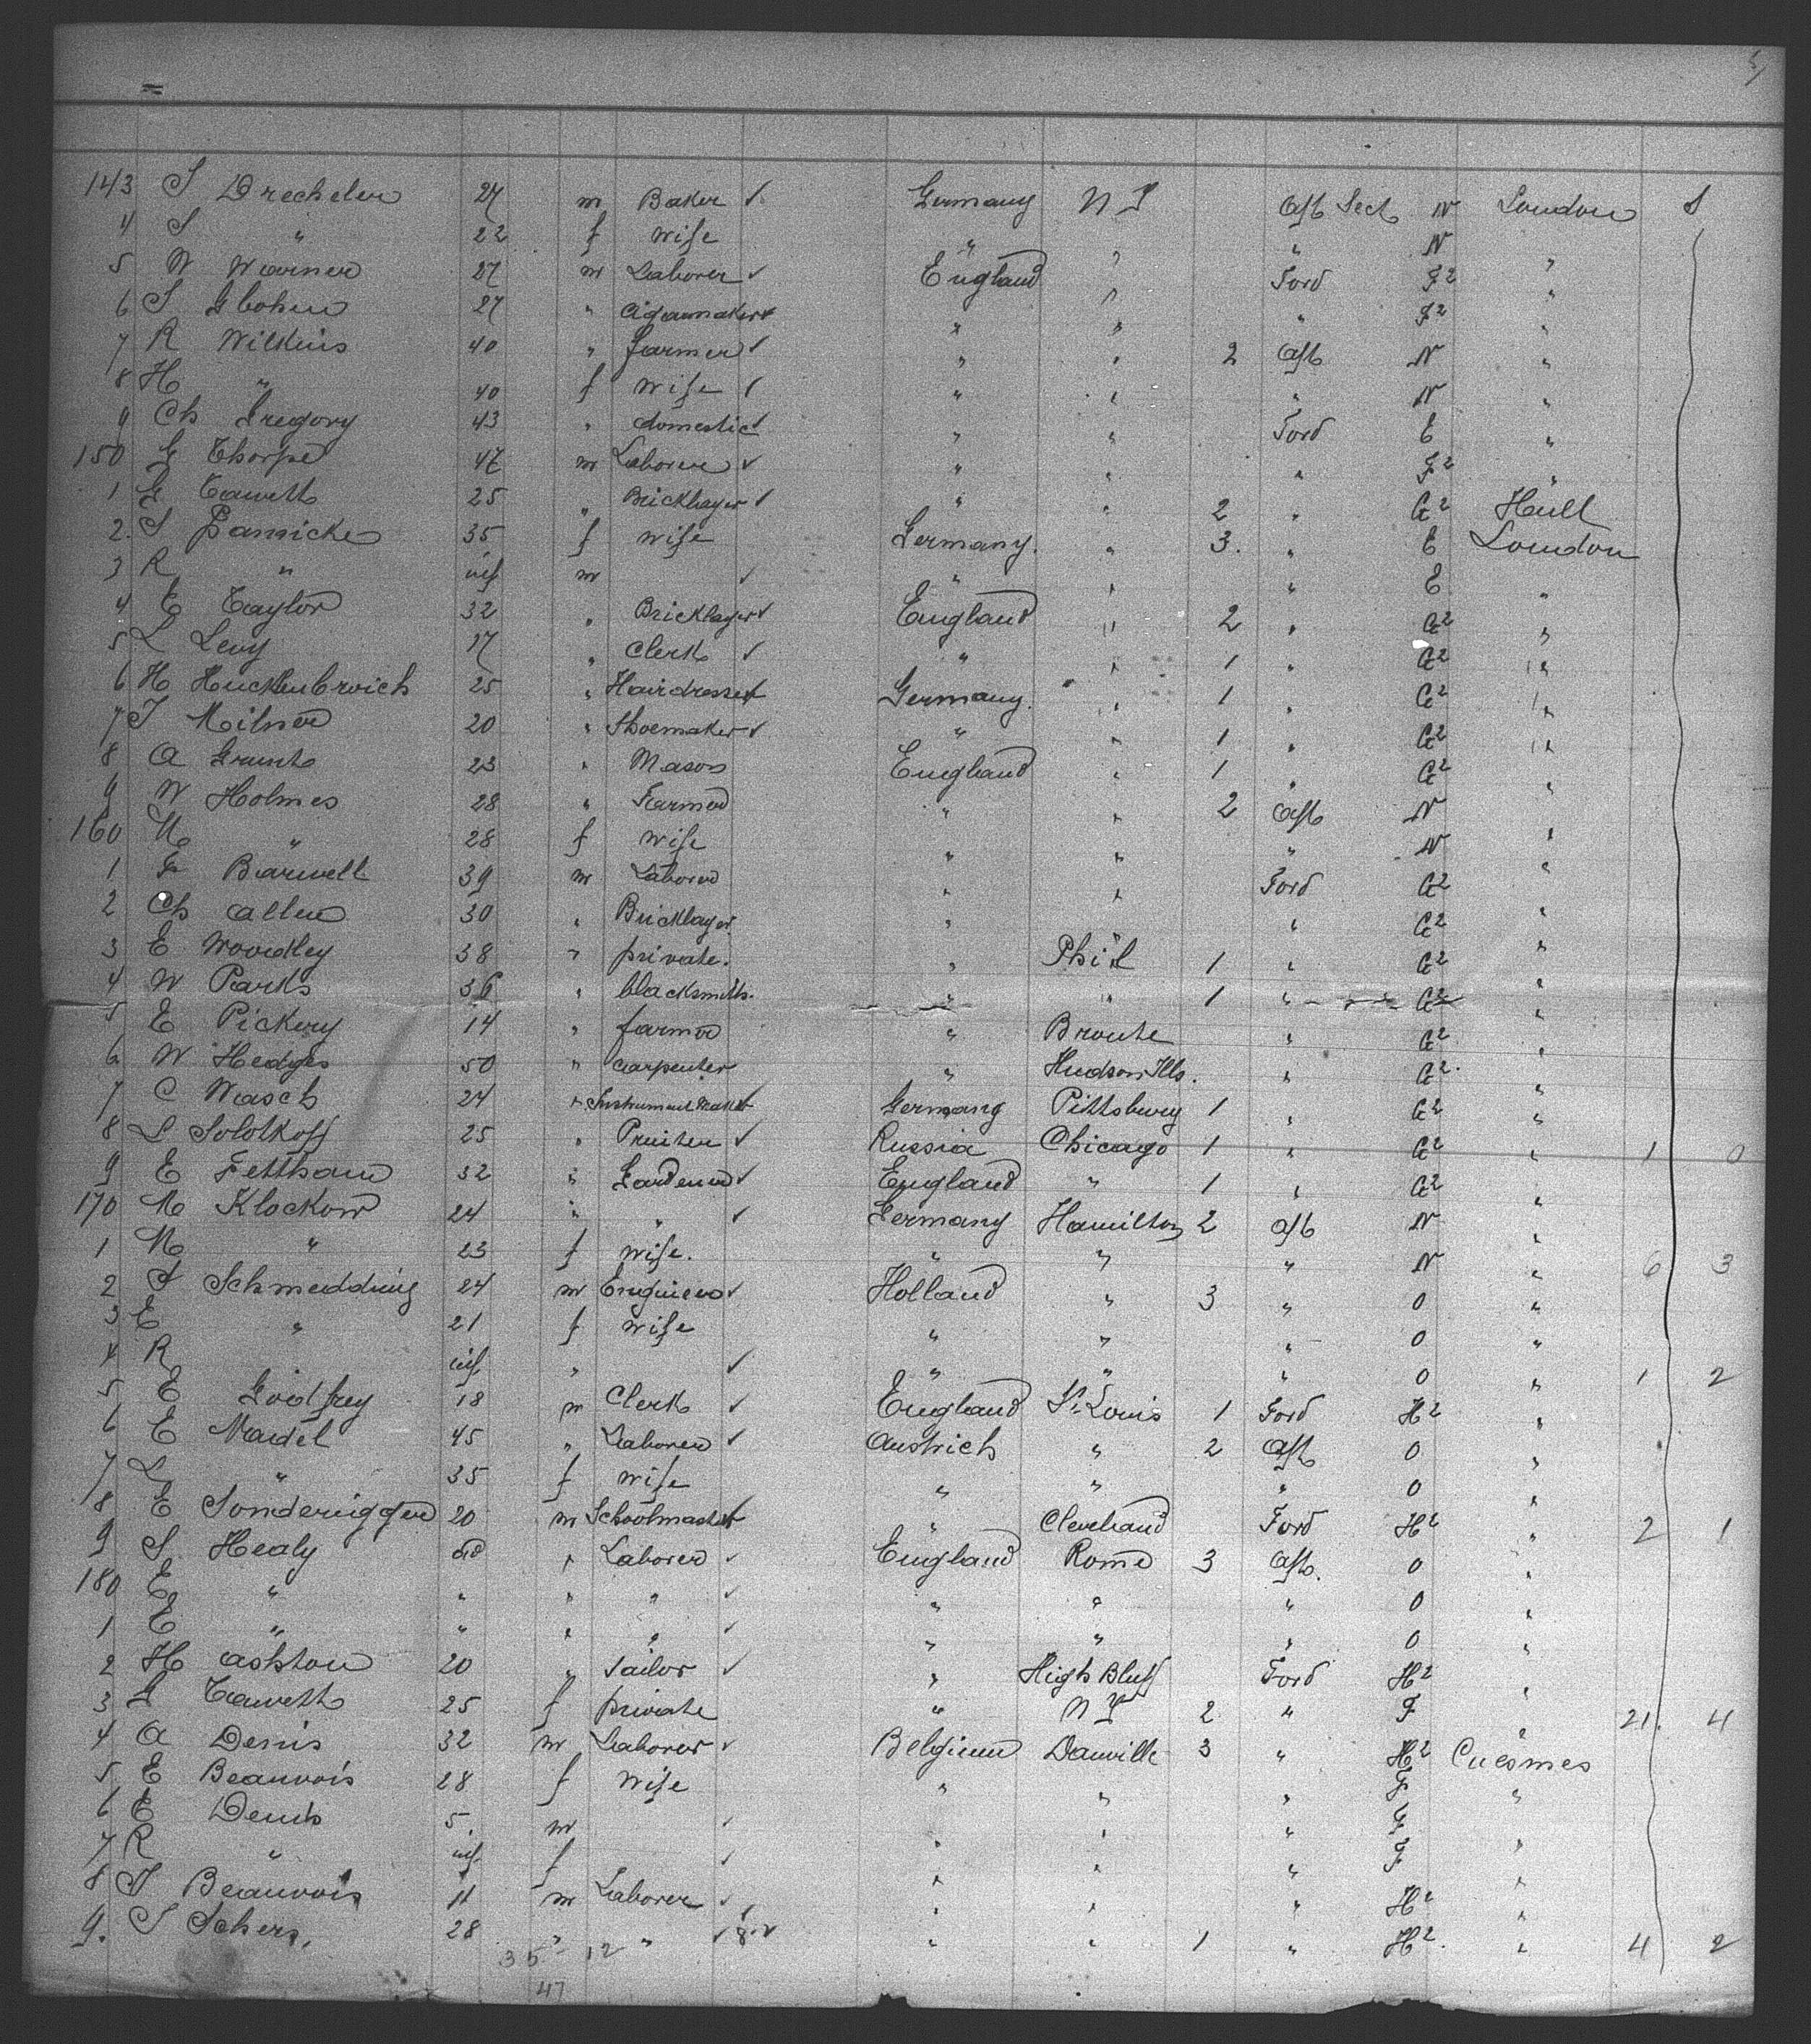 5
143 J Drecheler 27 m Baker ✓ Germany N Y Aft Sect N London S
4 S " 22 f wife " " " N "
5 W Warner 27 m Laborer ✓ England " Ford F2 "
6 S 27 " Cigarmaker ✓ " " " F2 "
7 R Wilkins 40 " farmer ✓ " " 2 Aft N "
8 H " 40 f wife ✓ " " " N "
9 Ch Gregory 43 " domestic ✓ " " Ford E "
150 G Thorpe 47 m Laborer ✓ " " " F2 "
1 G 25 " Bricklayer ✓ " " 2 " G2 Hull
2. S 35 f wife Germany. " 3. " E London
3 R " inf m ✓ " " " E "
4 E Taylor 32 " Bricklayer ✓ England " 2 " G2 "
5 L Levy 17 " Clerk ✓ " " 1 " G2 "
6 H Hucklenbroich 25 " Hairdresser ✓ Germany. " 1 " G2 "
7 J Milner 20 " Shoemaker ✓ " " 1 " G2 "
8 A 23 " Mason England " 1 " G2 "
9 W Holmes 28 " Farmer " " 2 Aft N "
160 M " 28 f wife " " " N "
1 F Barwell 39 m Laborer " " Ford G2 "
2 Ch Allen 30 " Bricklayer " " " G2 "
3 E Woodley 38 " private. " Phi'l 1 " G2 "
4 W Parks 36 " blacksmith. " " 1 " G2 "
5 E Pickery 14 " farmer " Bronte " G2 "
6 W Hedges 50 " carpenter " Hudson Ills. " G2 "
7 C Wasch 24 " Instrument Maker ✓ Germany Pittsburg 1 " G2 "
8 S Solotkoff 25 " Printer ✓ Russia Chicago 1 " G2 " 1 0
9 E Feltham 32 " Gardener ✓ England " 1 " G2 "
170 M Klockow 24 " " ✓ Germany Hamilton 2 Aft N "
1 M " 23 f wife. " " " N " 6 3
2 J Schmedding 24 m Engineer ✓ Holland " 3 " O "
3 E " 21 f wife " " " O "
4 R inf " ✓ " " " O " 1 2
5 E Godfrey 18 m Clerk ✓ England St Louis 1 Ford H2 "
6 E Madel 45 " Laborer ✓ Austrich " 2 Aft O "
7 L " 35 f wife " " " O "
8 E Sonderigger 20 m Schoolmaster ✓ " Cleveland Ford H2 " 2 1
9 S Healy ad " Laborer ✓ England Rome 3 Aft. O "
180 E " " " " ✓ " " " O "
1 E " " " " ✓ " " " O "
2 H Ashton 20 " Tailor ✓ " High Bluff Ford H2 "
3 G 25 f private " N Y 2 " F " 21. 4
4 A Denis 32 m Laborer ✓ Belgium Danville 3 " H2 Cuesmes
5 E Beauvois 28 f Wife " " " F "
6 E Denis 5. m ✓ " " " F "
7 R " inf. f ✓ " " " F "
8 J Beauvois 11 m Laborer ✓ " " " H2 "
9. J Schers, 28 " " ✓ 8 ✓ " " 1 " H2. " 4 2
35 12
47